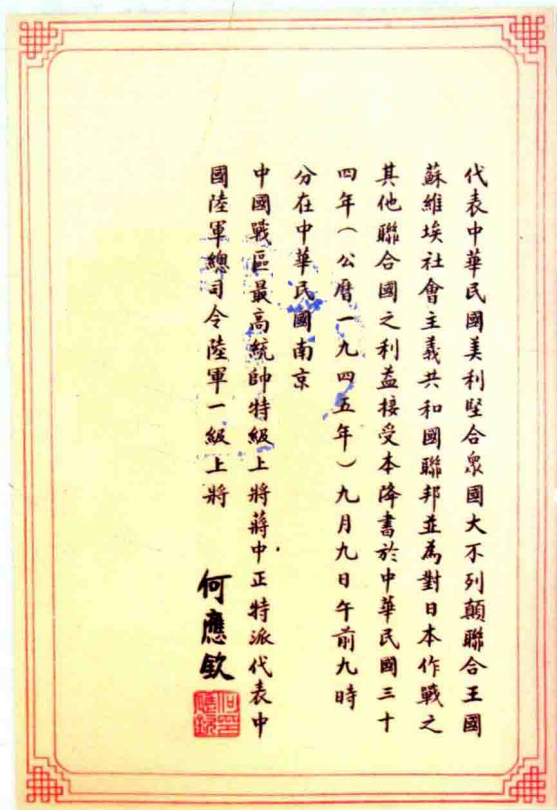 代表中華民國美利堅合衆國大不列顛聯合王國
蘇維埃社會主義共和國聯邦並為對日本作戰之
其他聯合國之利益接受本降書於中華民國三十
四年（公曆一九四五年）九月九日午前九時
分在中華民國南京
中國戰區最高統帥特級上將蔣中正特派代表中
國陸軍總司令陸軍一級上將
何應欽
何應欽印